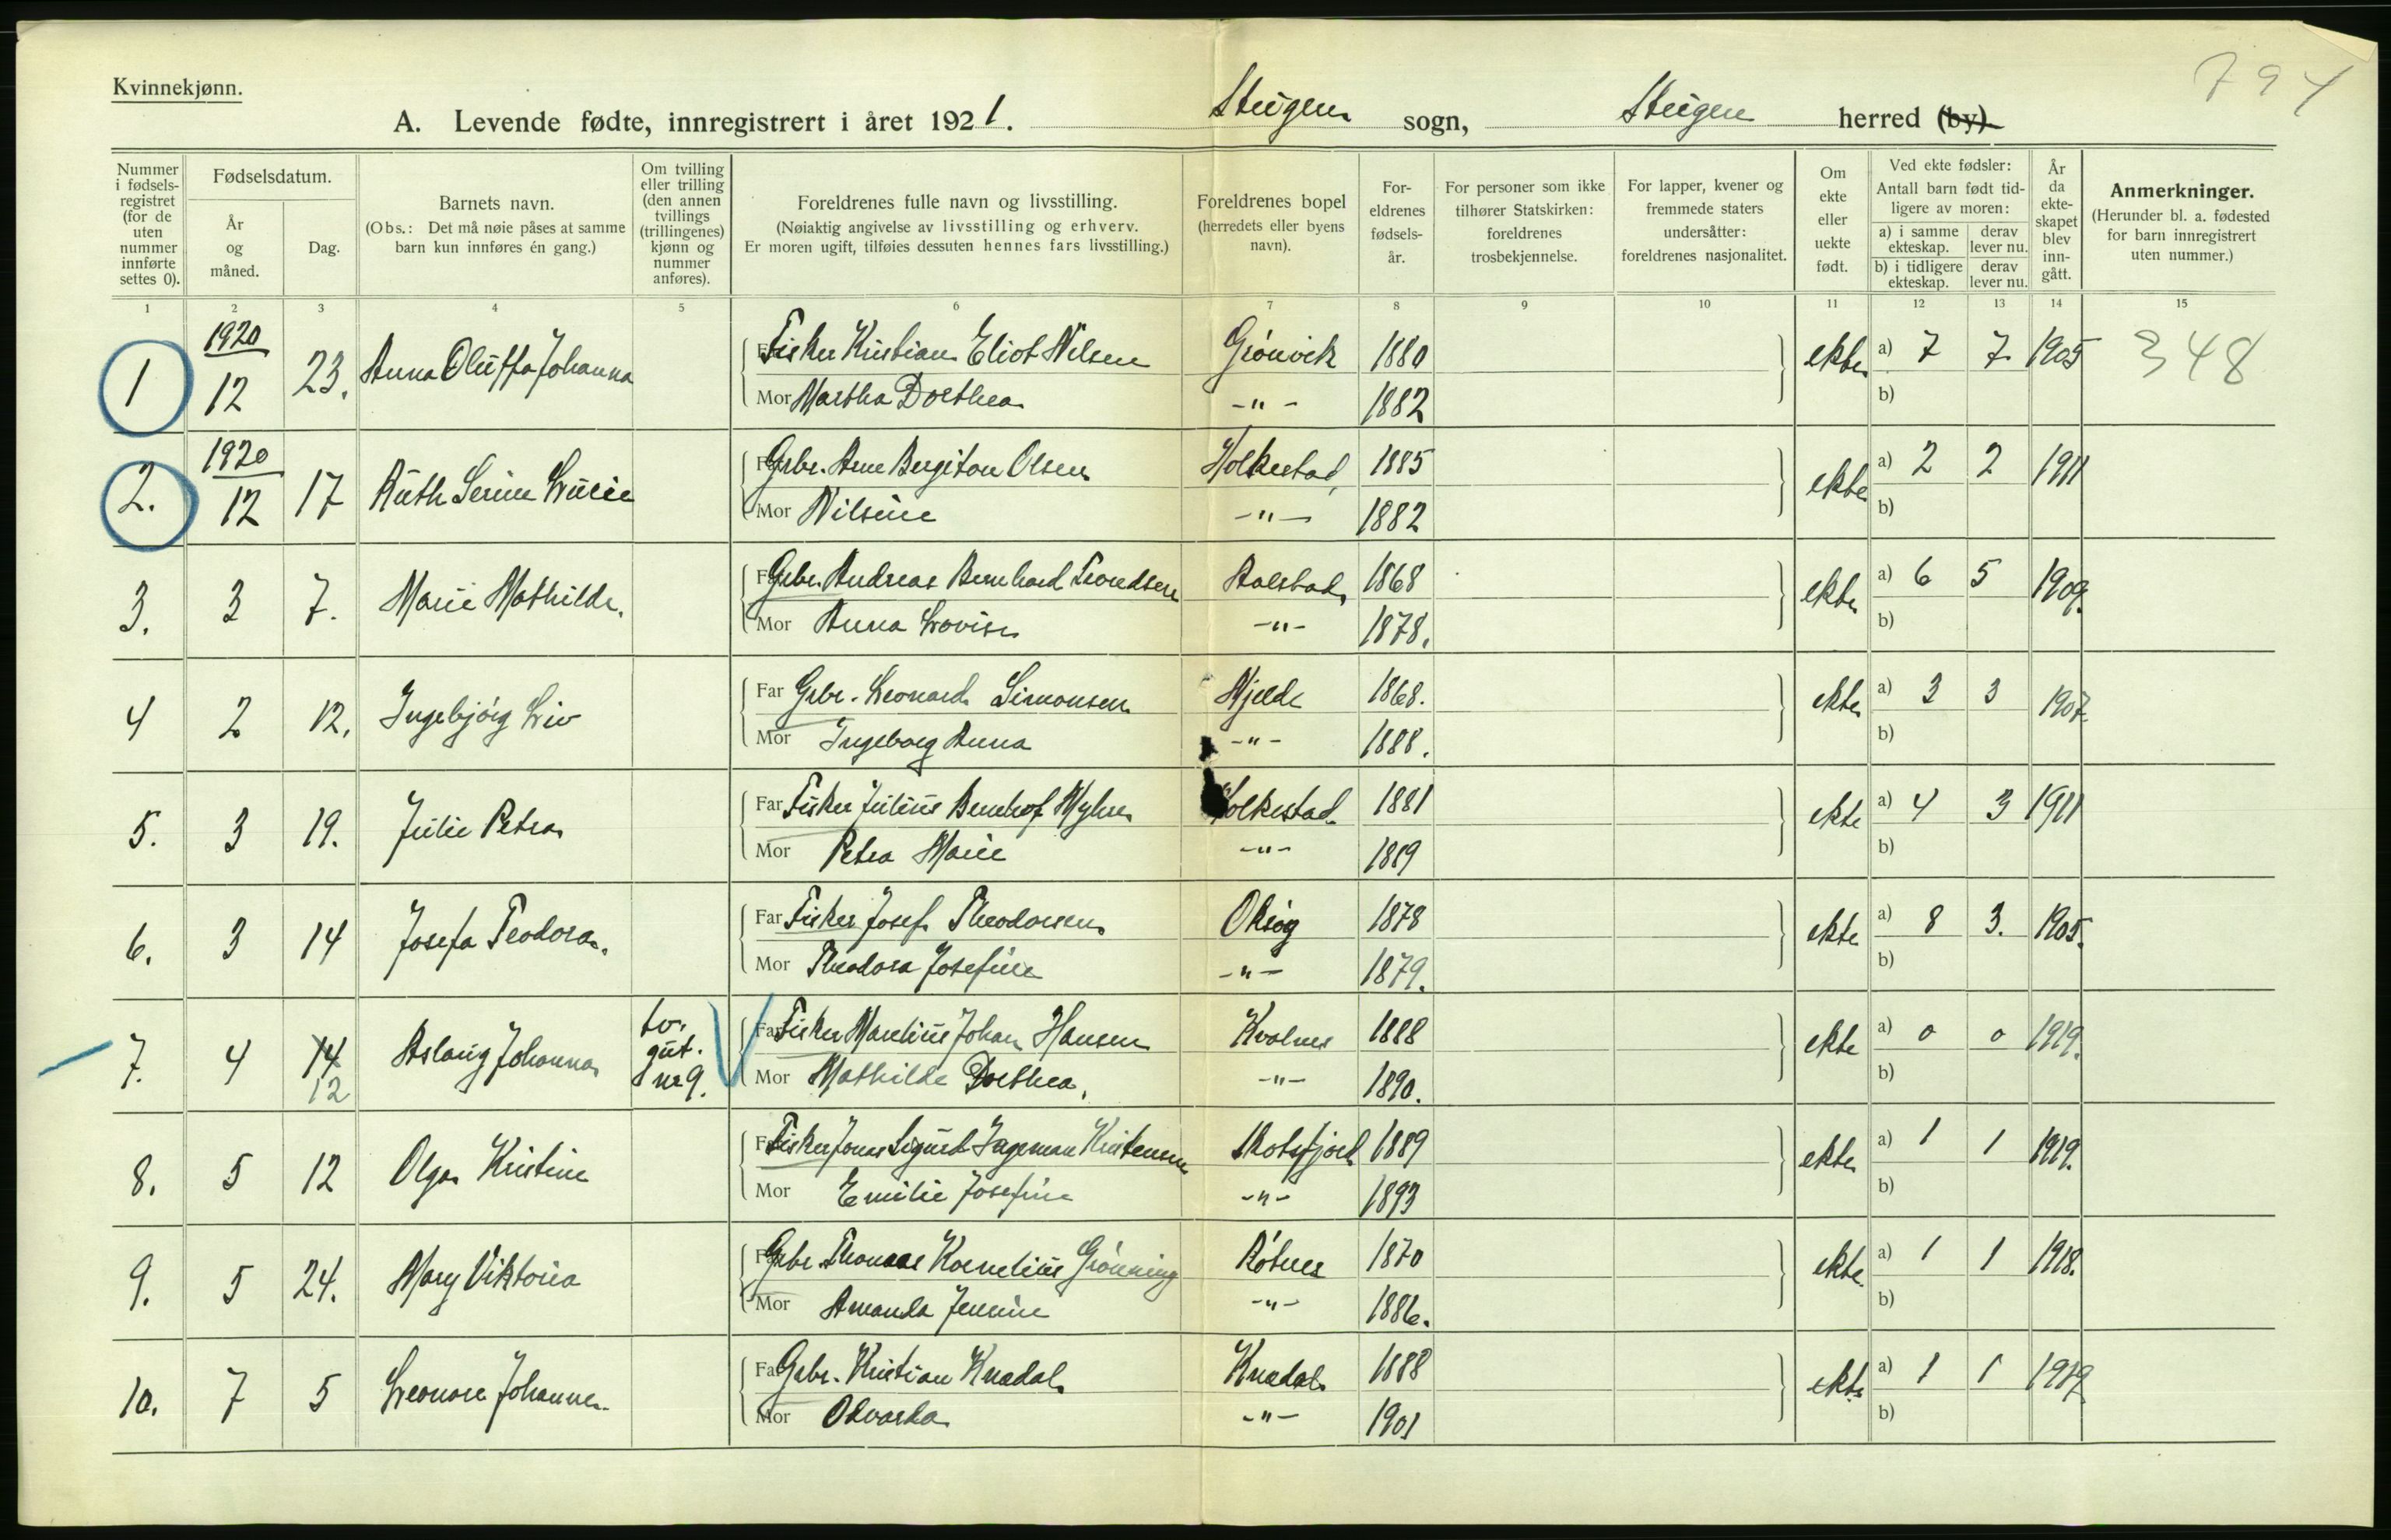 Kvinnekjønn.
794
A. Levende fødte, innregistrert i året 1921. Steigen sogn, Steigen herred (by)
Nummer i fødsels-registret (for de uten nummer innførte settes 0).
Fødselsdatum.
År og måned.
Dag.
Barnets navn.
(Obs.: Det må nøie påses at samme barn kun innføres én gang.)
Om tvilling eller trilling (den annen tvillings (trillingenes) kjønn og nummer anføres).
Foreldrenes fulle navn og livsstilling.
(Nøiaktig angivelse av livsstilling og erhverv.
Er moren ugift, tilføies dessuten hennes fars livsstilling.)
Foreldrenes bopel
(herredets eller byens navn).
For-eldrenes fødsels-år.
For personer som ikke tilhører Statskirken: foreldrenes trosbekjennelse.
For lapper, kvener og fremmede staters undersåtter: foreldrenes nasjonalitet.
Om ekte eller uekte født.
Ved ekte fødsler:
Antall barn født tid-ligere av moren:
a) i samme ekteskap. derav lever nu.
b) i tidligere ekteskap. derav lever nu.
År da ekte-skapet blev inn-gått.
Anmerkninger.
(Herunder bl. a. fødested for barn innregistrert uten nummer.)
1 2 3 4 5 6 7 8 9 10 11 12 13 14 15
1 1920 12 23. Anna Oluffa Johanna Fisker Kristian Eliot Nilsen Grönvik 1880 ekte a) 7 7 1905 348
Mor Martha Dorthea -"- 1882 b)
2. 1920 12 17 Ruth Serine Lucie Grbr. Arne Bergiton Olsen Holkestad, 1885 ekte a) 2 2 1911
Mor Nilsine -"- 1882 b)
3. 3 7. Marie Mathilde. Grbr. Andreas Bernhard Trondsen Aalstad, 1868 ekte a) 6 5 1909.
Mor Anna Lovise -"- 1878. b)
4 2. 12. Ingebjörg Liv Far Grbr. Leonard Simonsen Hjelde 1868. ekte a) 3 3 1907.
Mor Ingeborg Anna -"- 1888. b)
5. 3 19. Julie Petra Far Fisker Julius Bernhof Myhre Holkestad. 1881 ekte a) 4 3 1911
Mor Petra Marie -"- 1889 b)
6. 3 14 Josefa Teodora. Far Fisker Josef Theodorsen Oksög 1878 ekte a) 8 3. 1905.
Mor Theodora Josefine -"- 1879. b)
7. 4 14 12 Aslaug Johanna tv. gut. nr 9. Far Fisker Marelius Johan Hansen Kvalnes 1888 ekte a) 0 0 1919.
Mor Mathilde Dorthea. -"- 1890. b)
8. 5 12 Olga Kristine Fisker Jonas Sigurd Ingeman Kristensen Skotsfjord 1889 ekte a) 1 1 1919.
Mor Emilie Josefine -"- 1893 b)
9. 5 24. Mary Viktoria Grbr. Thomas Kornelius Grönning Rötnes 1870 ekte. a) 1 1 1918.
Mor Amanda Jensine -"- 1886. b)
10. 7 5 Leonore Johanne. Far Grbr. Kristian Knædal Knædal 1888 ekte a) 1 1 1919
Mor Odvarda -"- 1901 b)